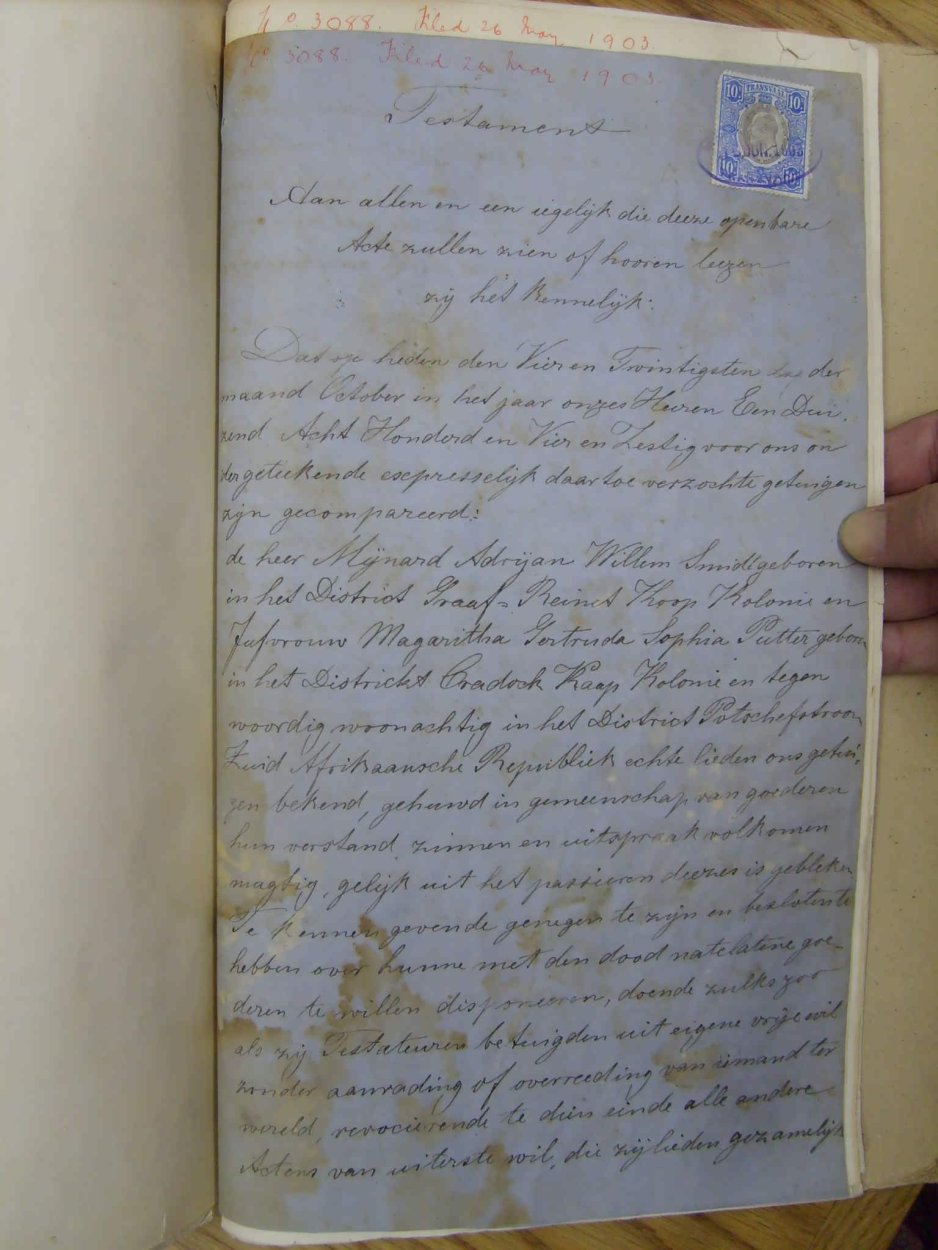 No. 3088. Filed 26 May 1903.
No. 3088. Filed 26 May 1903.
TRANSVAAL
10/ 10/
JUN. 1903
10/ 10/
Testament
Aan allen en een iegelijk die deeze openbare
Acte zullen zien of hooren leezen
zij het kennelijk:
Dat op heden den Vier en Twintigsten dag der
maand October in het jaar onzes Heeren Een Dui-
zend Acht Honderd en Vier en Zestig voor ons on
dergeteekende expresselijk daartoe verzochte getuigen
zijn gecompareerd:
de heer Mijnard Adrijan Willem Smidt geboren
in het District Graaf-Reinet Koop Kolonie en
Jufvrouw Magaritha Gertruda Sophia Putter geboren
in het Districkt Cradock Kaap Kolonie en tegen
woordig woonachtig in het District Potschefstroom
Zuid Afrikaansche Republiek echte lieden ons getui-
gen bekend, gehuwd in gemeenschap van goederen
hun verstand, zinnen en uitspraak volkomen
magtig, gelijk uit het passieren deezes is gebleken
Te kennen gevende genegen te zijn en besloten te
hebben over hunne met den dood natelatene goe-
deren te willen disponeeren, doende zulks zoo
als zij Testateuren betuigden uit eigene vrije wil
zonder aanrading of overreeding van iimand ter
wereld, revocierende te dien einde alle andere
Actens van uiterste wil, die zijlieden gezamelijk